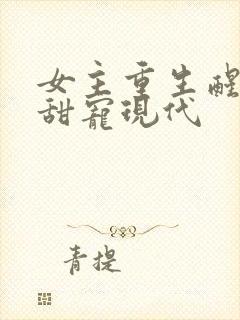 女主重生醒
甜寵現代
青提